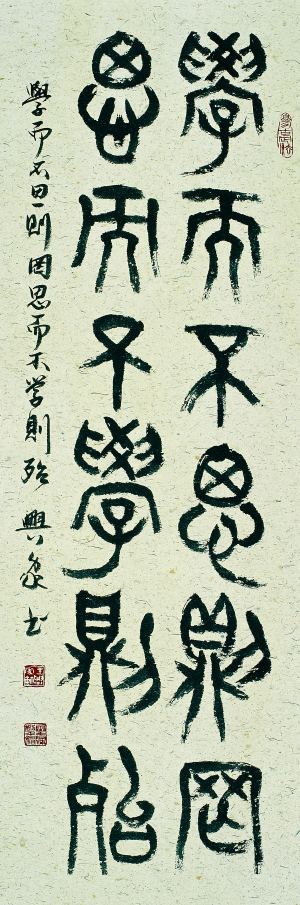 學而不思則罔
思而不學則殆
學而不思則罔思而不学則殆 興 书